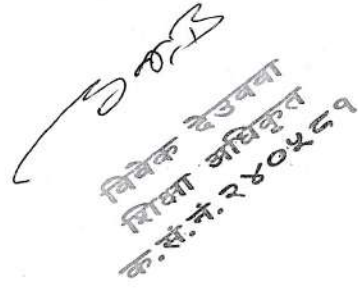 विवेक देउवबा
शिक्षा अधिकृत
क.सं.नं. २४०५८१